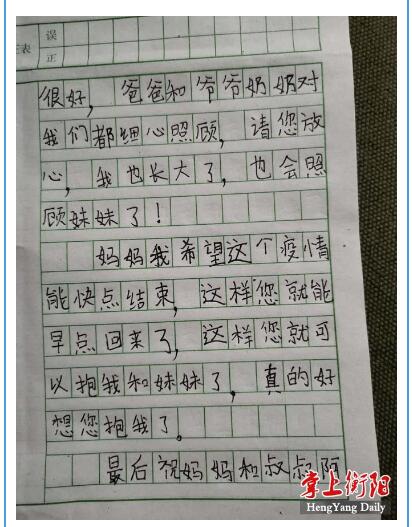 误
表
正
很好，爸爸和爷爷奶奶对
我们都细心照顾，请您放
心，我也长大了，也会照
顾妹妹了！
妈妈我希望这个疫情
能快点结束，这样您就能
早点回来了，这样您就可
以抱我和妹妹了，真的好
想您抱我了。
最后祝妈妈和叔叔阿
掌上衡阳
HengYang Daily